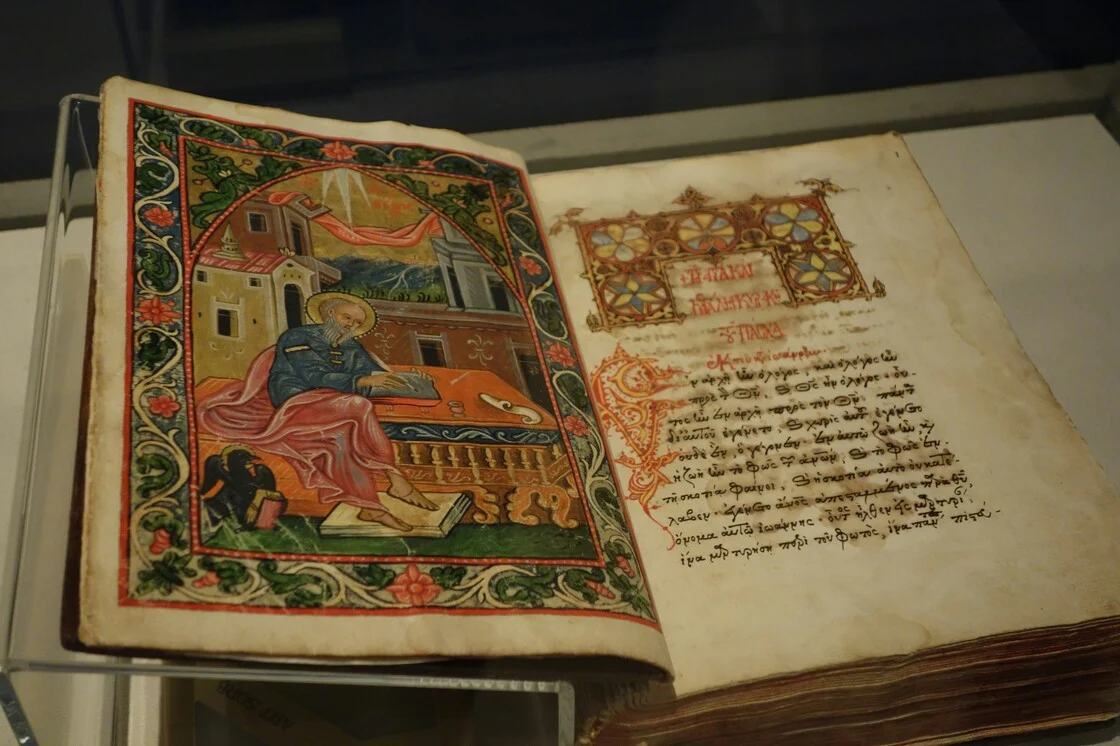 ΠΑΣΧΑ
ἐν ἀρχῇ ἦν ὁ λόγος, καὶ ὁ λόγος ἦν
πρὸς τ Θν, ϗ Θς ἦν ὁ λόγος· οὗ-
τος ἦν ἐν ἀρχῇ πρὸς τὸν Θν· πάντ
δι' αὐτοῦ ἐγένετο, ϗ χωρὶς αὐτ ἐγένετο
οὐδὲ ἕν, ὃ γέγονεν· ἐν αὐτῷ ζωὴ ἦν, ϗ
ἡ ζωὴ ἦν τὸ φῶς τ ἀνων· ϗ τὸ φῶς ἐν
τῇ σκοτίᾳ φαίνει, ϗ ἡ σκοτία αὐτὸ οὐ κατέ-
λαβεν· ἐγένετο ἄνος ἀπεσταλμένος παρὰ θυ,
ὄνομα αὐτῷ ἰωάννης· οὗτος ἦλθεν εἰς μρτυρί
ἵνα μρτυρήσῃ περὶ τοῦ φωτός, ἵνα παν πιστ-